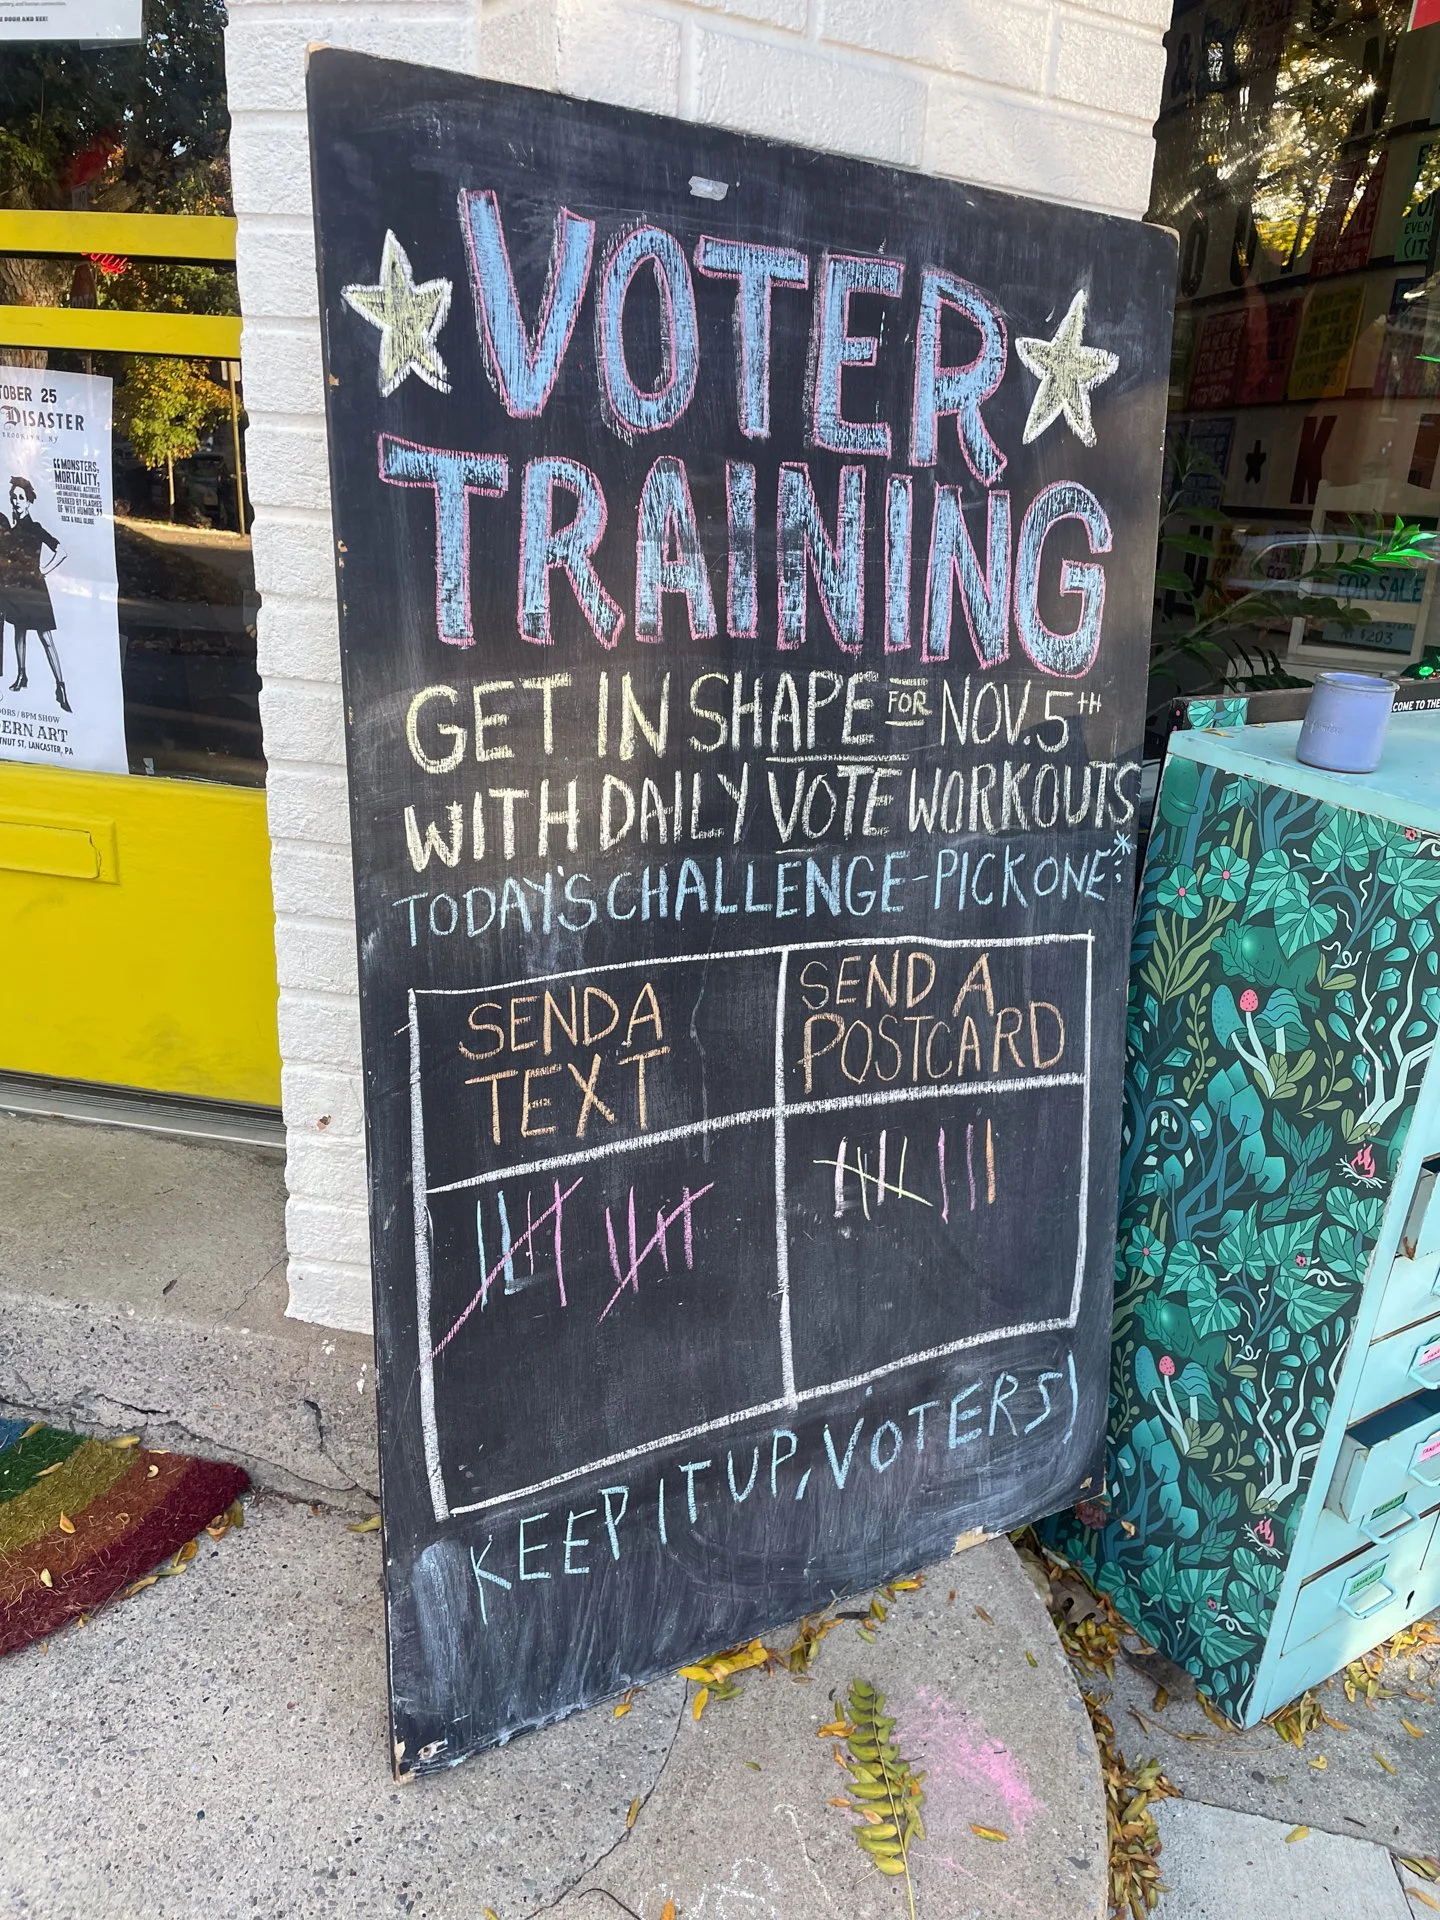 VOTER
TRAINING
GET IN SHAPE FOR NOV. 5TH
WITH DAILY VOTE WORKOUTS
TODAY'S CHALLENGE - PICK ONE*:
SEND A
TEXT
SEND A
POSTCARD
KEEP IT UP, VOTERS)
DOOR AND SEE!
TOBER 25
DISASTER
BROOKLYN, NY
"MONSTERS,
MORTALITY,
PARANORMAL ACTIVITY
SPARKED BY FLASHES
OF WRY HUMOR."
ORS / 8PM SHOW
ERN ART
TNUT ST, LANCASTER, PA
FOR SALE
AT $203
COME TO THE
EVEN
K